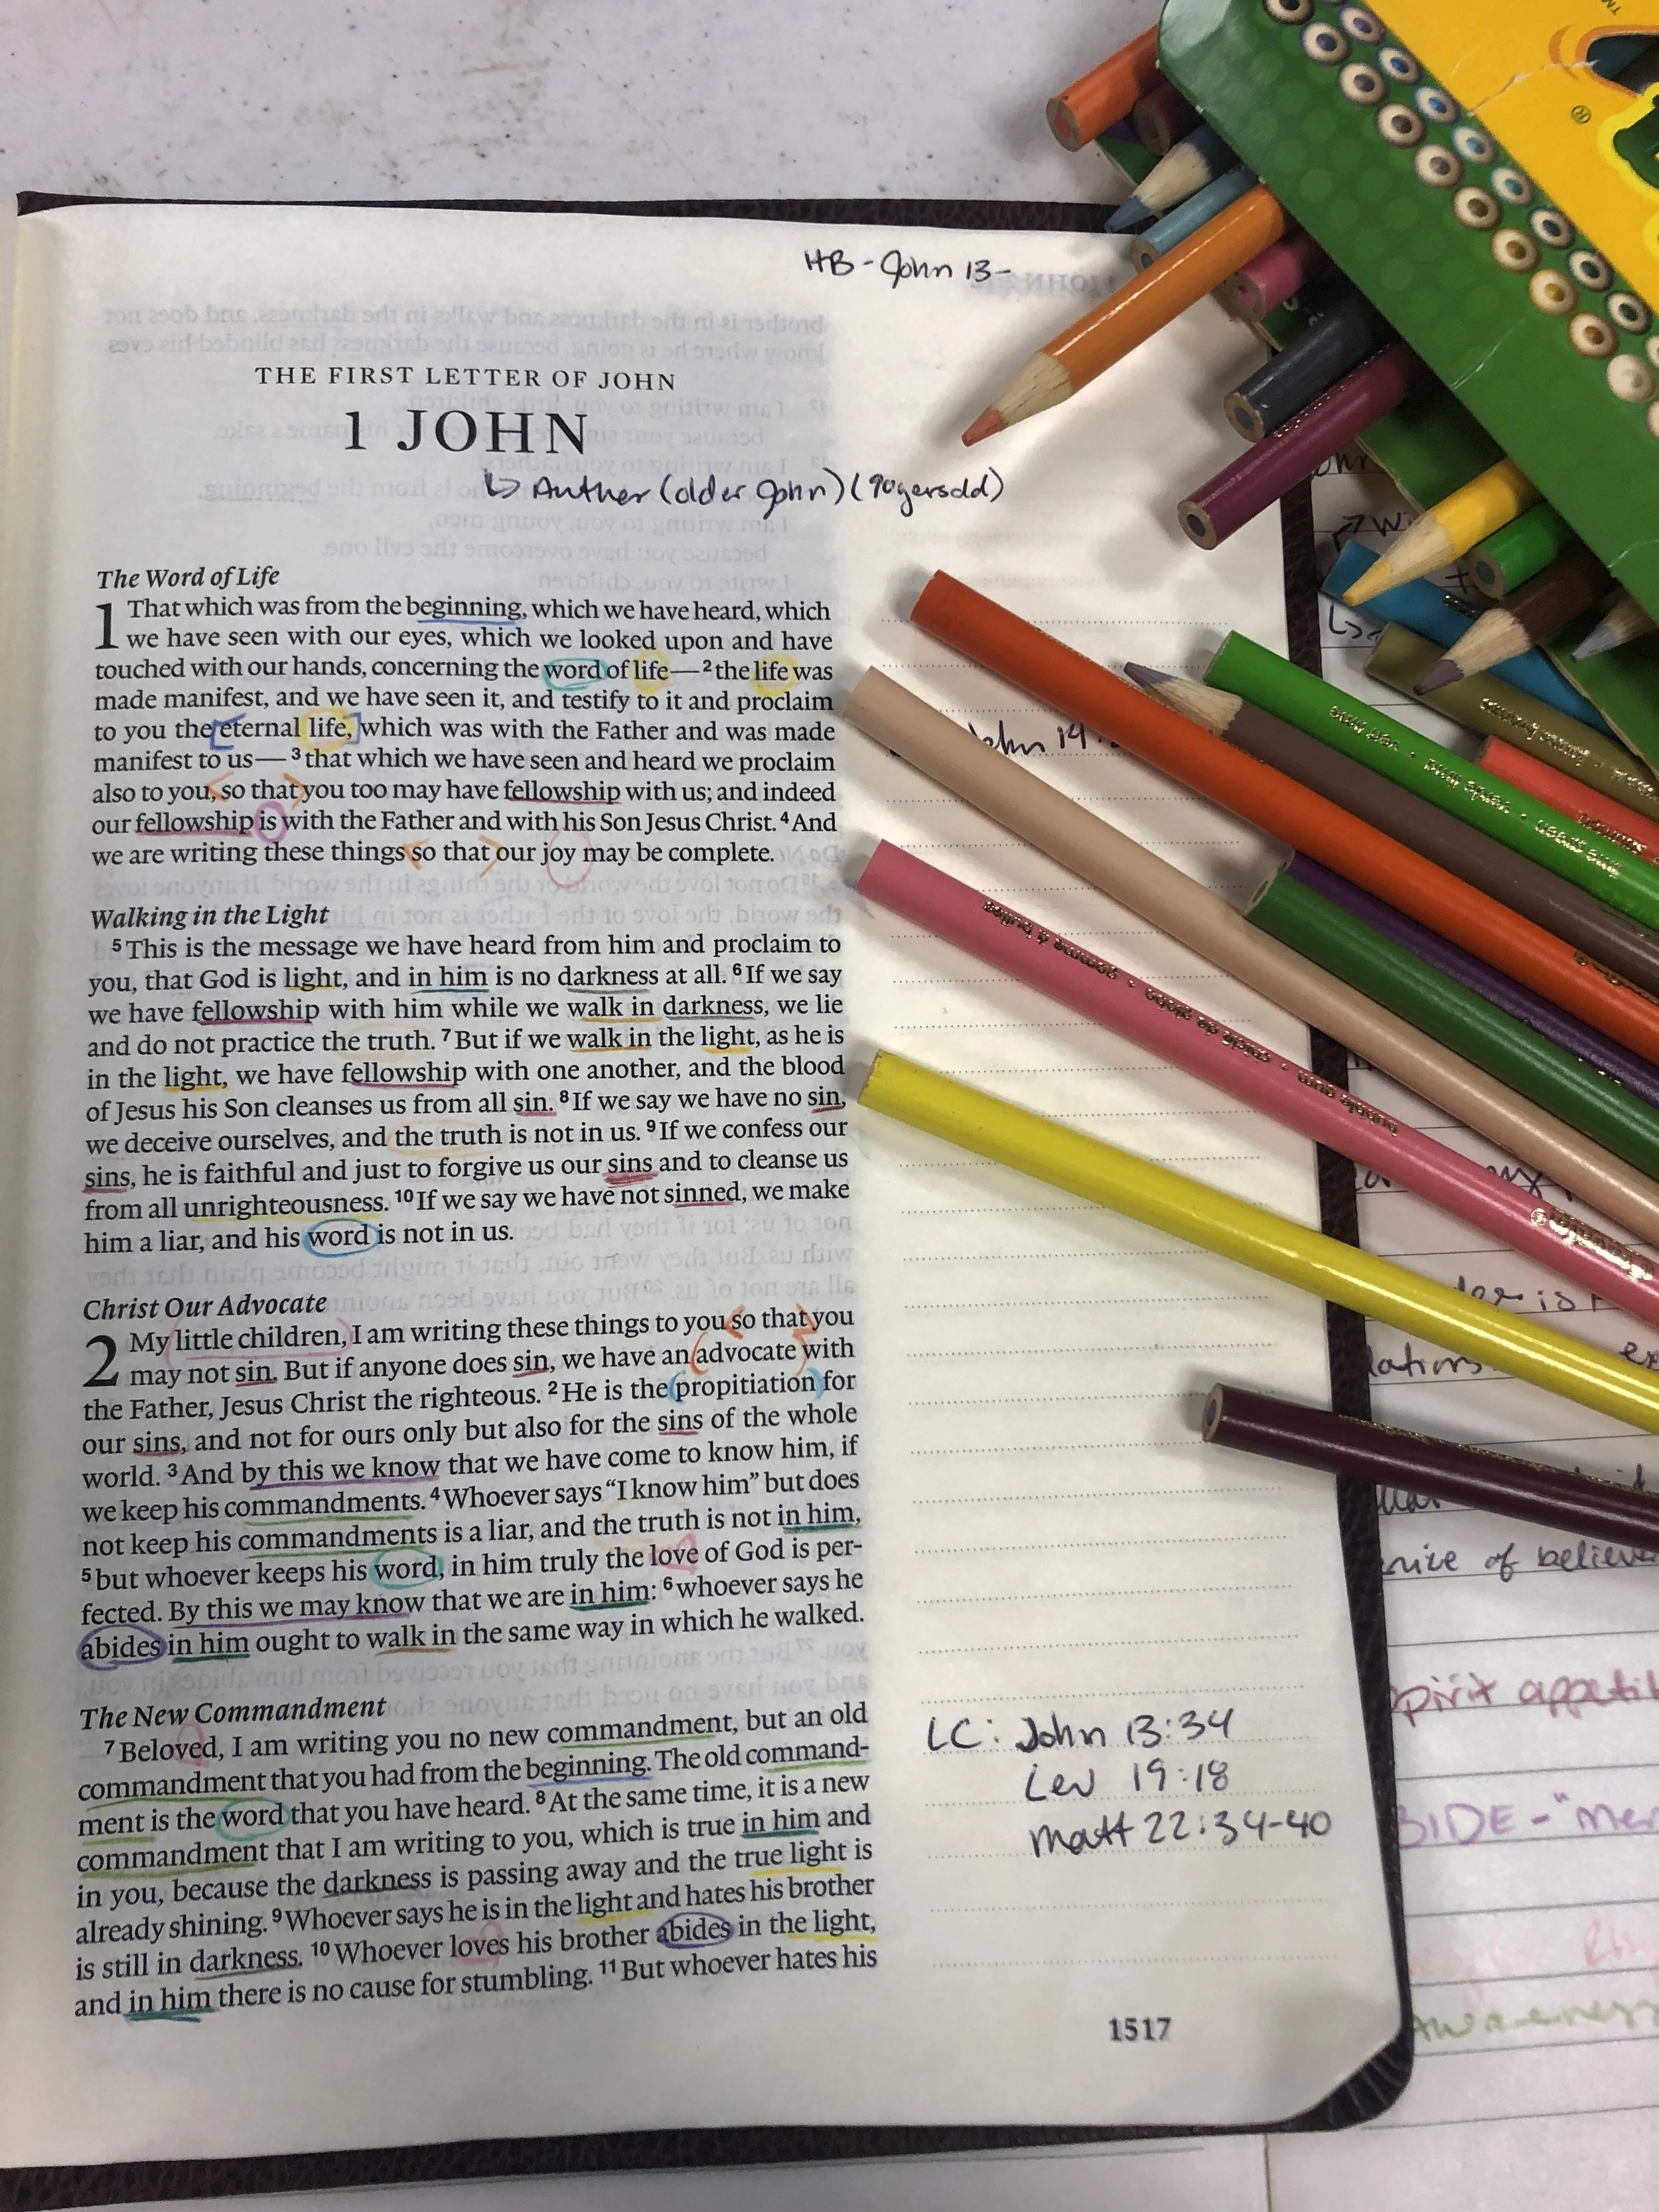 HB - John 13-
THE FIRST LETTER OF JOHN
1 JOHN
↳ Auther (older John) (90yersold)
The Word of Life
1 That which was from the beginning, which we have heard, which
we have seen with our eyes, which we looked upon and have
touched with our hands, concerning the word of life— 2 the life was
made manifest, and we have seen it, and testify to it and proclaim
to you the eternal life, which was with the Father and was made
manifest to us— 3 that which we have seen and heard we proclaim
also to you, so that you too may have fellowship with us; and indeed
our fellowship is with the Father and with his Son Jesus Christ. 4 And
we are writing these things so that our joy may be complete.
Walking in the Light
5 This is the message we have heard from him and proclaim to
you, that God is light, and in him is no darkness at all. 6 If we say
we have fellowship with him while we walk in darkness, we lie
and do not practice the truth. 7 But if we walk in the light, as he is
in the light, we have fellowship with one another, and the blood
of Jesus his Son cleanses us from all sin. 8 If we say we have no sin,
we deceive ourselves, and the truth is not in us. 9 If we confess our
sins, he is faithful and just to forgive us our sins and to cleanse us
from all unrighteousness. 10 If we say we have not sinned, we make
him a liar, and his word is not in us.
Christ Our Advocate
2 My little children, I am writing these things to you so that you
may not sin. But if anyone does sin, we have an advocate with
the Father, Jesus Christ the righteous. 2 He is the propitiation for
our sins, and not for ours only but also for the sins of the whole
world. 3 And by this we know that we have come to know him, if
we keep his commandments. 4 Whoever says “I know him” but does
not keep his commandments is a liar, and the truth is not in him,
5 but whoever keeps his word, in him truly the love of God is per-
fected. By this we may know that we are in him: 6 whoever says he
abides in him ought to walk in the same way in which he walked.
The New Commandment
7 Beloved, I am writing you no new commandment, but an old
commandment that you had from the beginning. The old command-
ment is the word that you have heard. 8 At the same time, it is a new
commandment that I am writing to you, which is true in him and
in you, because the darkness is passing away and the true light is
already shining. 9 Whoever says he is in the light and hates his brother
is still in darkness. 10 Whoever loves his brother abides in the light,
and in him there is no cause for stumbling. 11 But whoever hates his
John 14:
LC: John 13:34
Lev 19:18
Matt 22:34-40
1517
vert lime • verde lima • lime green
gomme à bulles • chicle de globo • bubble gum
of believe
appetit
BIDE - "mer